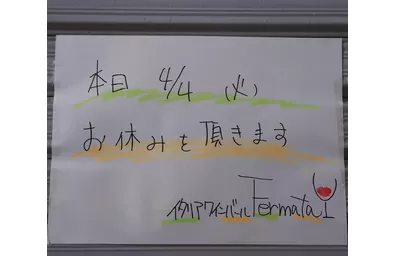 本日 4/4 (火)
お休みを頂きます
イタリアワインバル Fermata